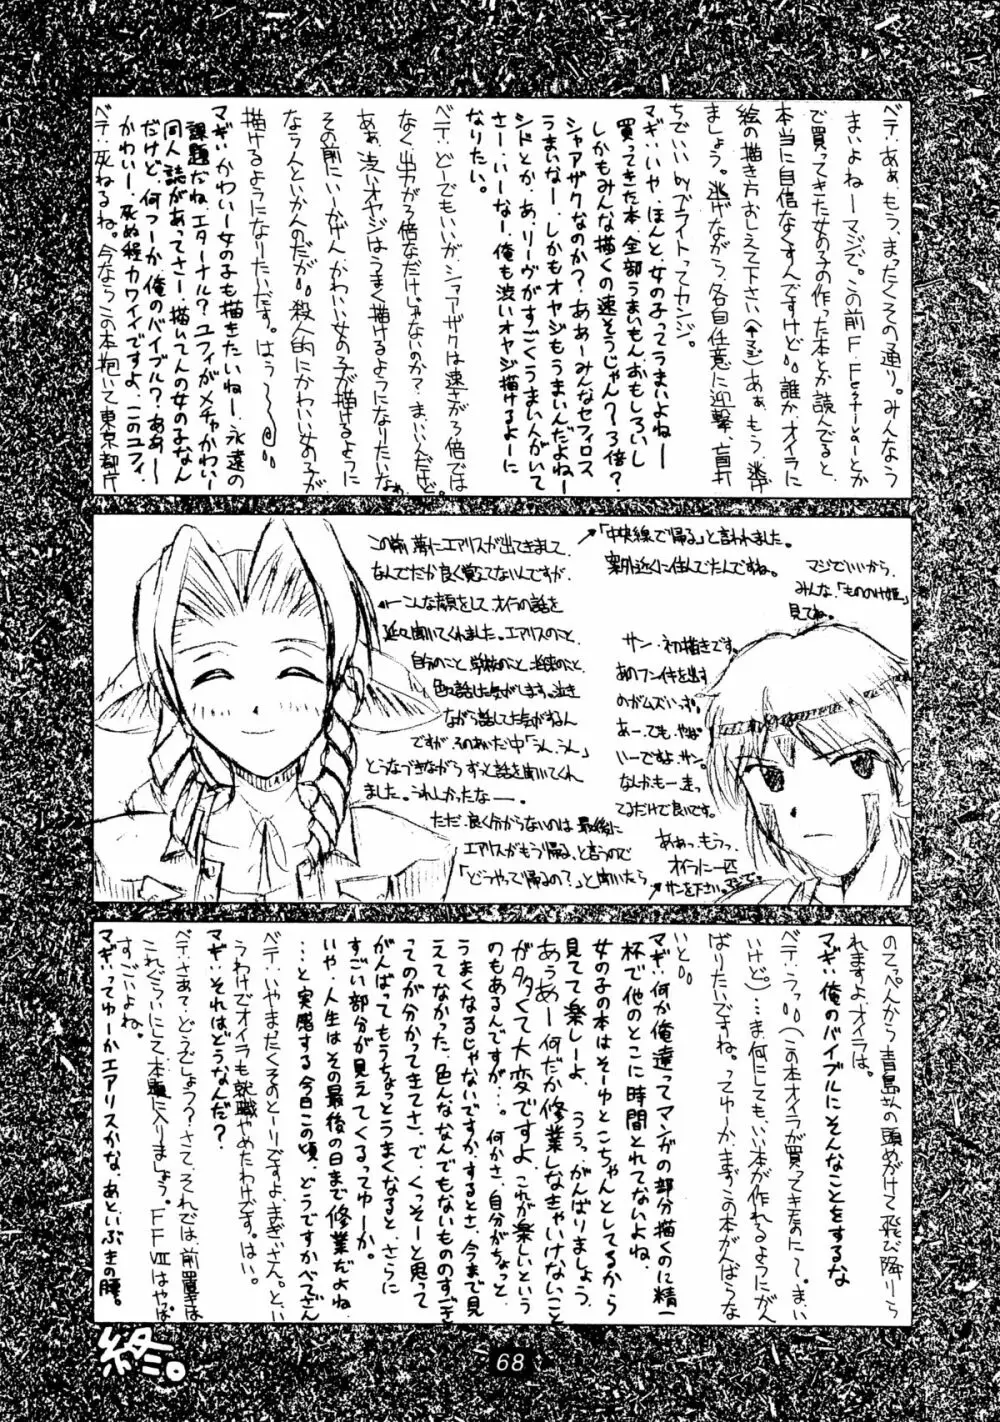 ベテ:あぁ、もう、まったくその通り。みんなう
まいよねーマジで。この前F・Festiaーとか
で買ってきた女の子の作った本とか読んでると、
本当に自信なくすんですけど。。誰かオイラに
絵の描き方おしえて下さい(↑マジ)あぁ、もう、逃げ
ましょう。逃げながら、各自任意に迎撃、盲打
ちでいい byブライトってカンジ。
マギ:いや、ほんと、女の子ってうまいよねー
買ってきた本、全部うまいもんおもしろいし
しかもみんな描くの速そうじゃん?3倍?
シャアザクなのか?ああーみんなセフィロス
うまいなー、しかもオヤジもうまいんだよねー
シドとか、あ、リーヴがすごくうまい人がいて
さー、いーなー、俺も渋いオヤジ描けるよーに
なりたい。
ベテ:どーでもいいが、シャアザクは速さが3倍では
なく、出力が3倍なだけじゃないのか?まいいんだけど。
あぁ、渋いオヤジはうまく描けるようになりたいなぁ
その前にいーかげん、かわいい女の子が描けるように
なら人といかんのだが。。殺人的にかわいい女の子が
描けるようになりたいです。はぅ〜
マギ:かわいー女の子も描きたいねー、永遠の
課題だね、エターナル?ユフィがメチャかわいー
同人誌があってさー、描いてんの女の子なん
だけど、何つーか俺のバイブル?ああー
かわいー、死ぬ程カワイイですよ、このユフィ、
ベテ:死ねるね。今ならこの本抱いて東京都庁
この前、夢にエアリスが出てきまして、
なんでだか良く覚えてないんですが、
←こんな顔をして、オイラの話を
延々聞いてくれました。エアリスのこと、
自分のこと、学校のこと、将来のこと、
色々話した気がします。泣き
ながら話してた気がすんね
ですが、そのあいだ中「うん、うん」
とうなづきながら、ずっと話を聞いてくれ
ました。うれしかったなー。
ただ、良く分からないのは、最後に
エアリスがもう帰る、と言うので
「どうやって帰るの?」と聞いたら
「中央線で帰る」と言われました。
案外近くに住んでたんですね。
マジでいいから、
みんな、「もののけ姫」
見てね。
サン・初描きです。
あのフンイキを出す
のがムズいっす。
あー、でも、やっぱ
いーですよ、サン。
なんかも一走っ
てるだけで良いです。
あぁっ、もうっ、
オイラに一匹
サンを下さい。マジで。
のてっぺんから青島刑事の頭めがけて飛び降りら
れますよ、オイラは。
マギ:俺のバイブルにそんなことをするな
ベテ:うっ。。(この本オイラが買ってきたのにー、まい
いけど)…ま何にしても、いい本が作れるようにがん
ばりたいですね。ってゅーか、まずこの本がんばらな
いと。。
マギ:何か俺達ってマンガの部分描くのに精一
杯で他のとこに時間とれてないよね、
女の子の本はそーゆとこちゃんとしてるから
見てて楽しーよ、ううっがんばりましょう、
あぅあー何だか修業しなきゃいけないこと
がタタくて大変ですよ、これが楽しいという
のもあるんですが…。何かさ、自分がちょっと
うまくなるじゃないですか、するとさ、今まで見
えてなかった、色んななんでもないもののすごさ
ってのが分かってきてさ、で、くっそーと思って
がんばってもうちょっとうまくなると、さらに
すごい部分が見えてくるってゅーか。
いや、人生はその最後の日まで修業だよね
…と実感する今日この頃、どうですかべてさん
ベテ:いやまだくそのとーりですよ、まぎぃさん。とい
うわけでオイラも就職やめたわけです。はい。
マギ:それはどうなんだ?
ベテ:さあて、どうでしょう?さて、それでは、前置きは
これぐらいにして本題に入りましょう。FFⅦはやっぱ
すごいよね。
マギ:ってゅーかエアリスかな、あといぶきの瞳。
終。
68